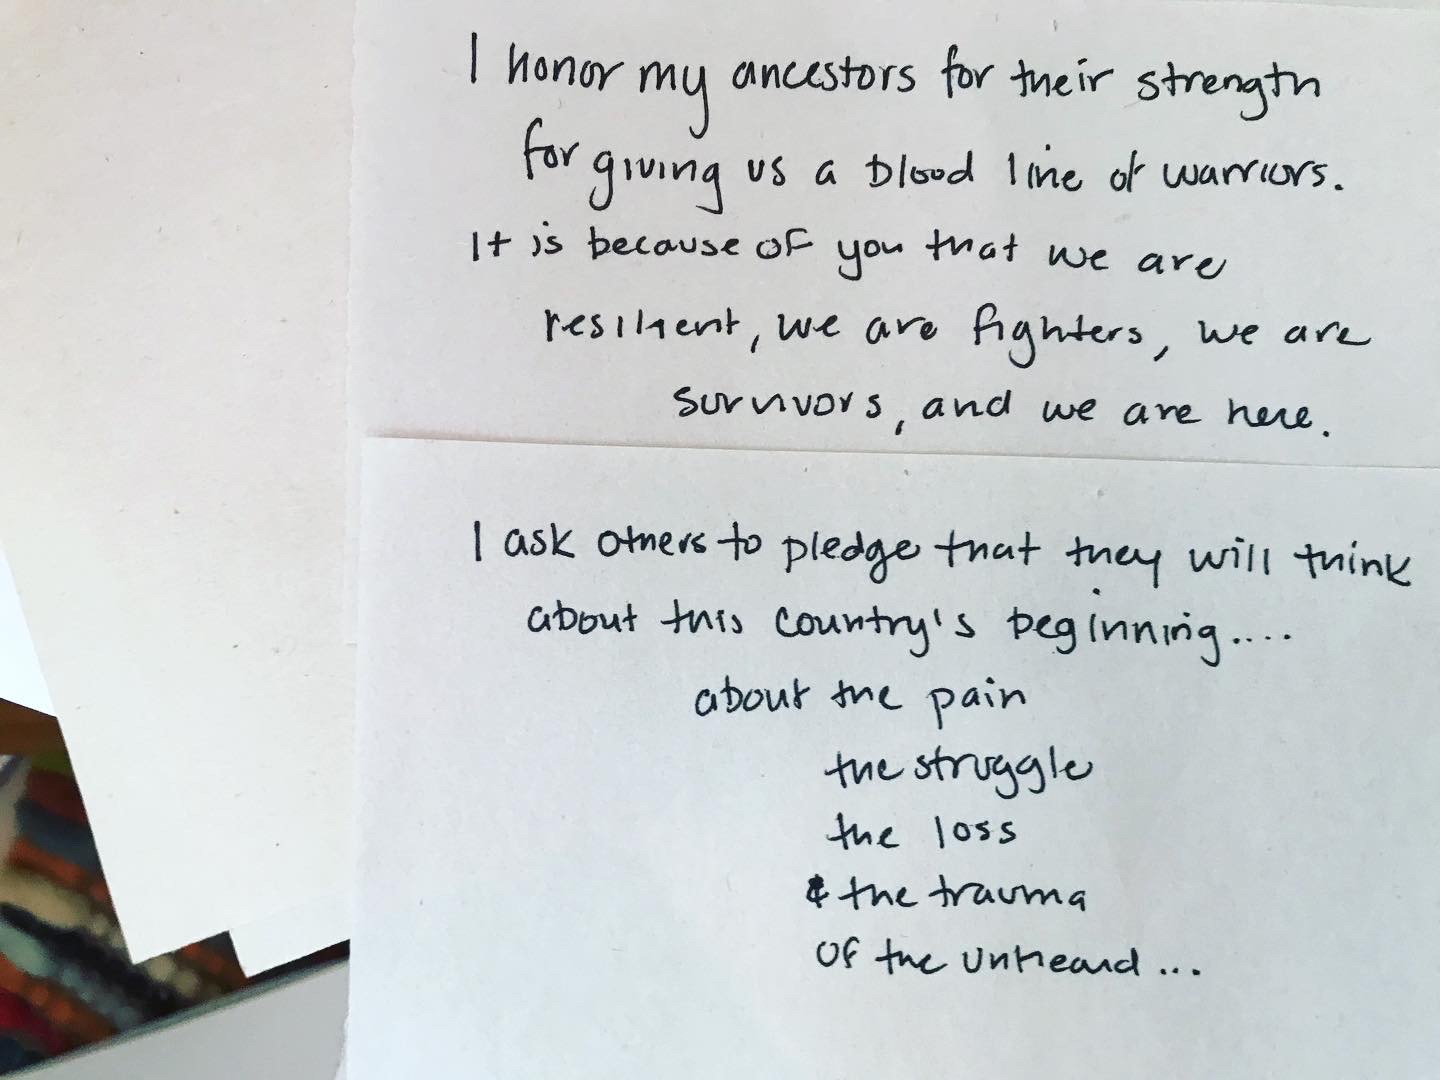 I honor my ancestors for their strength
for giving us a blood line of warriors.
It is because of you that we are
resilient, we are fighters, we are
survivors, and we are here.
I ask others to pledge that they will think
about this country's beginning....
about the pain
the struggle
the loss
& the trauma
of the unheard...